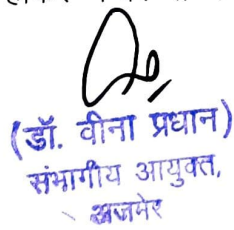 (डॉ. वीना प्रधान)
संभागीय आयुक्त,
अजमेर